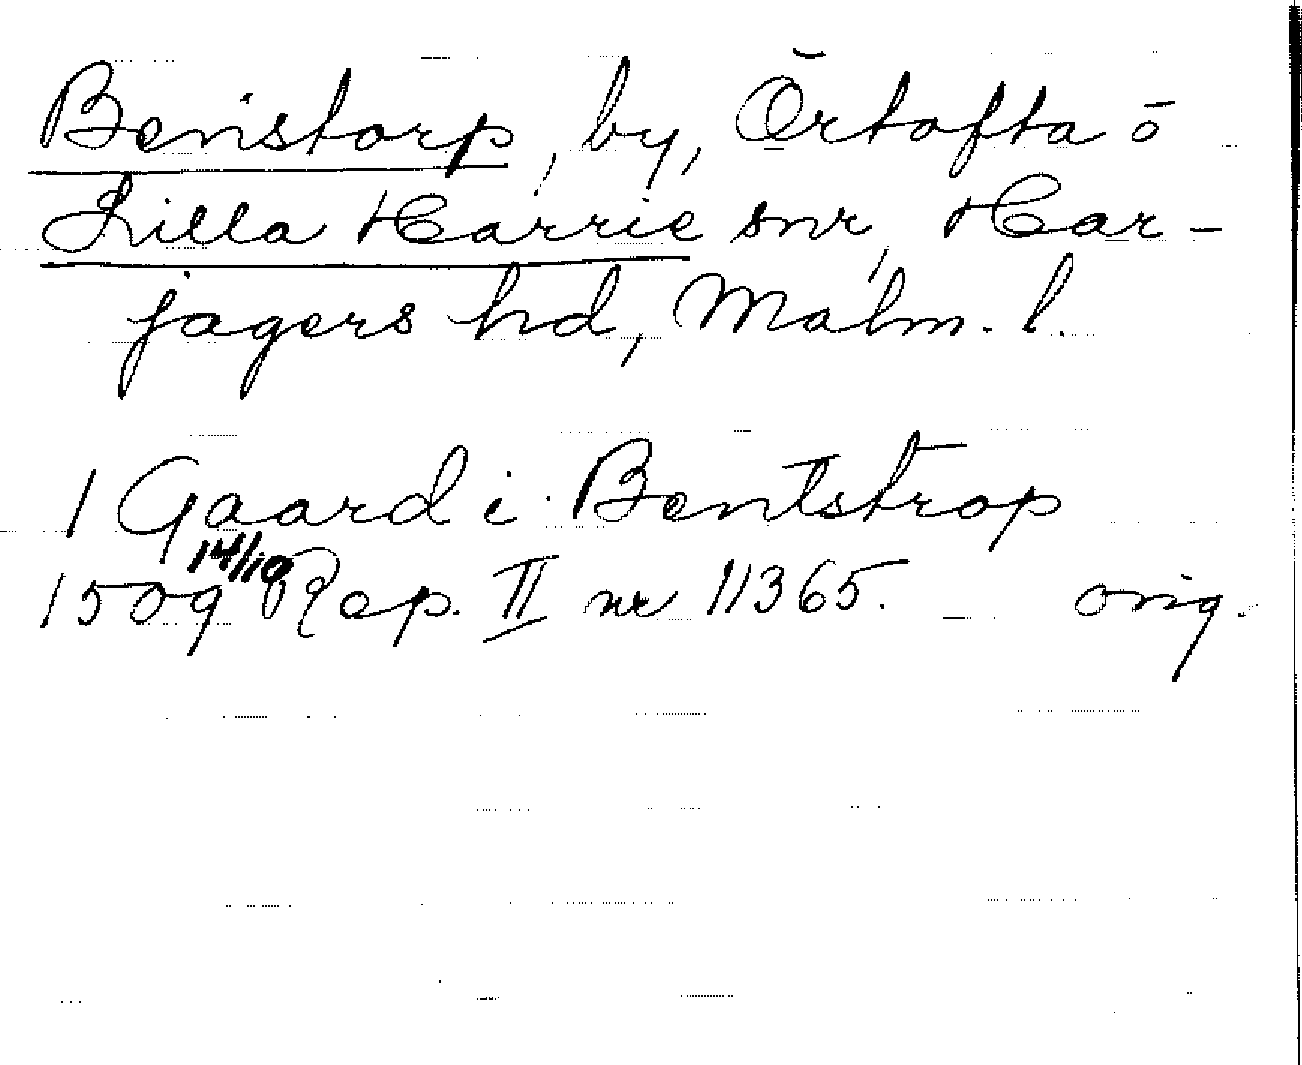 Benstorp, by, Örtofta o
Lilla Harrie snr, Har-
jagers hd, Malm. l.
1 Gaard i Bentstrop
1509 14/10 Rep. II nr 11365. orig.